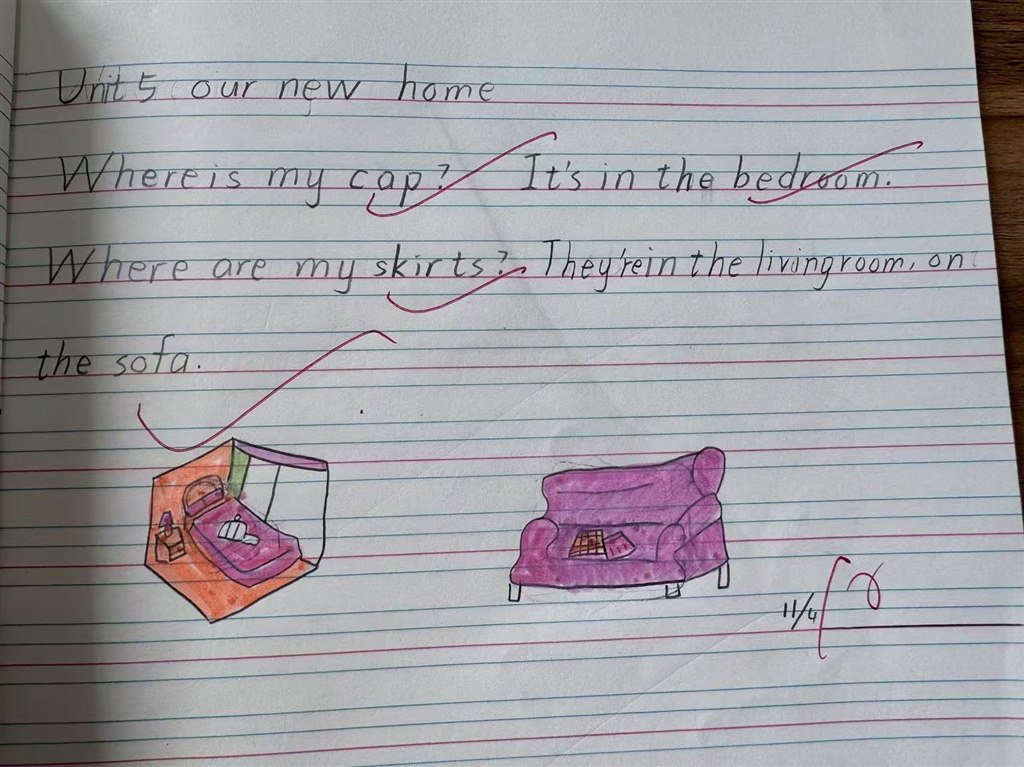 Unit 5 our new home
Where is my cap? It's in the bedroom.
Where are my skirts? They're in the living room, on
the sofa.
11/4